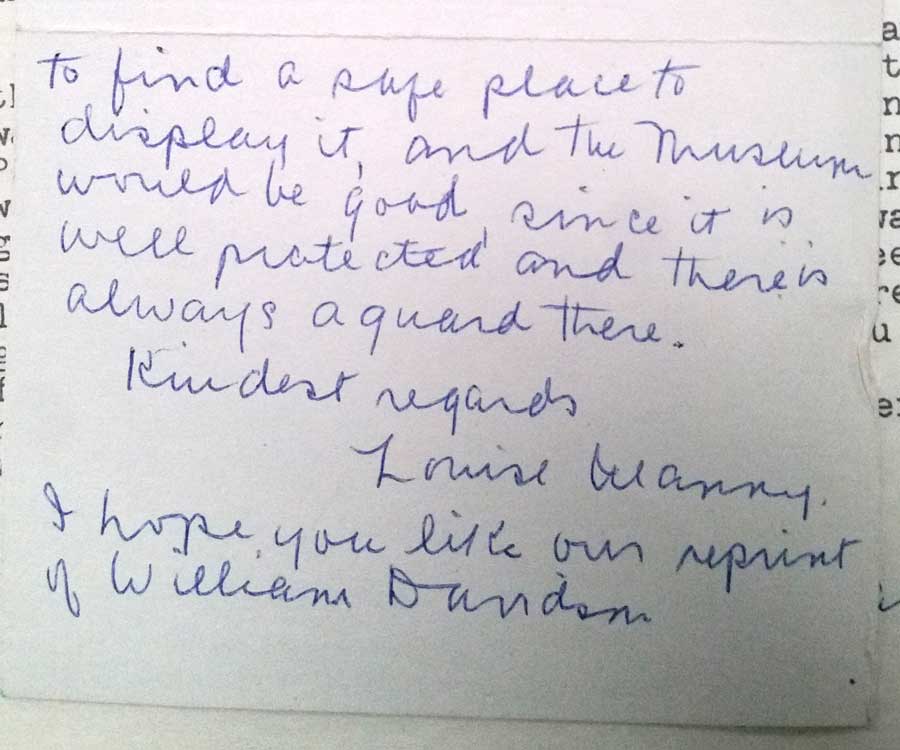 to find a safe place to
display it, and the Museum
would be good, since it is
well protected and there is
always a guard there.
Kindest regards
Louise Manny.
I hope you like our reprint
of William Davidson